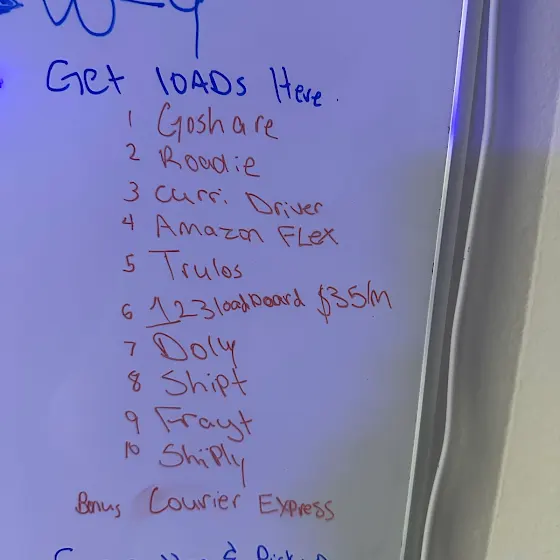 W-9
Get LOADs Here.
1 Goshare
2 Roadie
3 Curri Driver
4 Amazon FLex
5 Trulos
6 123loadboard $35/m
7 Dolly
8 Shipt
9 Frayt
10 Shiply
Bonus Courier Express